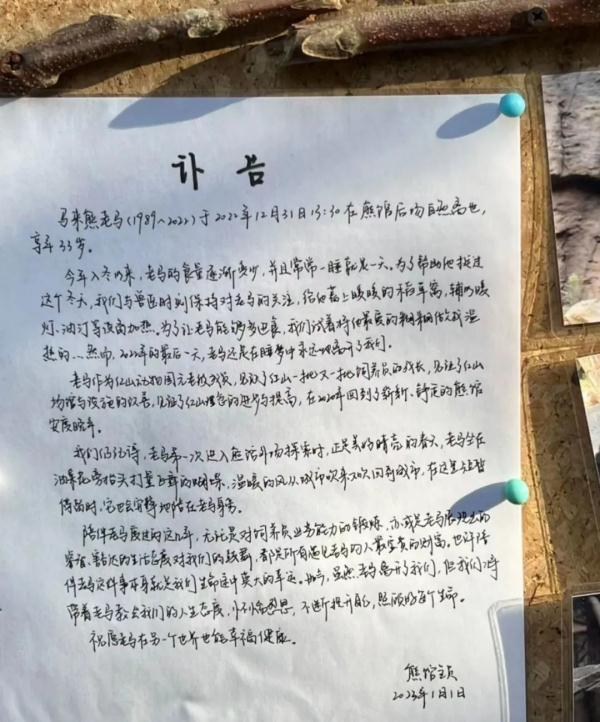 讣 告
马来熊老马(1989~2022)于2022年12月31日13:30在熊馆后场自然离世,
享年33岁。
今年入冬以来,老马的食量逐渐变少,并且常常一睡就是一天。为了帮助他挺过
这个冬天,我们与兽医时刻保持对老马的关注,给他盖上暖暖的稻草窝,辅以暖
灯、油汀等设备加热。为了让老马能够多进食,我们试着将他最爱的粥粥做成温
热的…然而,2022年的最后一天,老马还是在睡梦中永远地离开了我们。
老马作为红山动物园元老级成员,见证了红山一批又一批饲养员的成长,见证了红山
场馆与设施的改善,见证了红山理念的进步与提高,在2020年回到了崭新、舒适的熊馆
安度晚年。
我们仍记得,老马第一次进入熊馆外场探索时,正是美好晴亮的春天,老马坐在
油菜花旁抬头打量飞舞的蝴蝶,温暖的风从城市吹来又吹回到城市,在这里短暂
停留时,它也会安静地停在老马身旁。
陪伴老马度过的这几年,无论是对饲养员业务能力的锻炼,亦或是老马展现出的
坚强、豁达的生活态度对我们的鼓舞,都是所有遇见老马的人最宝贵的财富。也许陪
伴老马这件事本身就是我们生命途中莫大的幸运。虽然老马离开了我们,但我们将
带着老马教会我们的人生态度,常怀感恩,不断提升自己,照顾好每个生命。
祝愿老马在另一个世界也能幸福健康。
熊馆全员
2023年1月1日